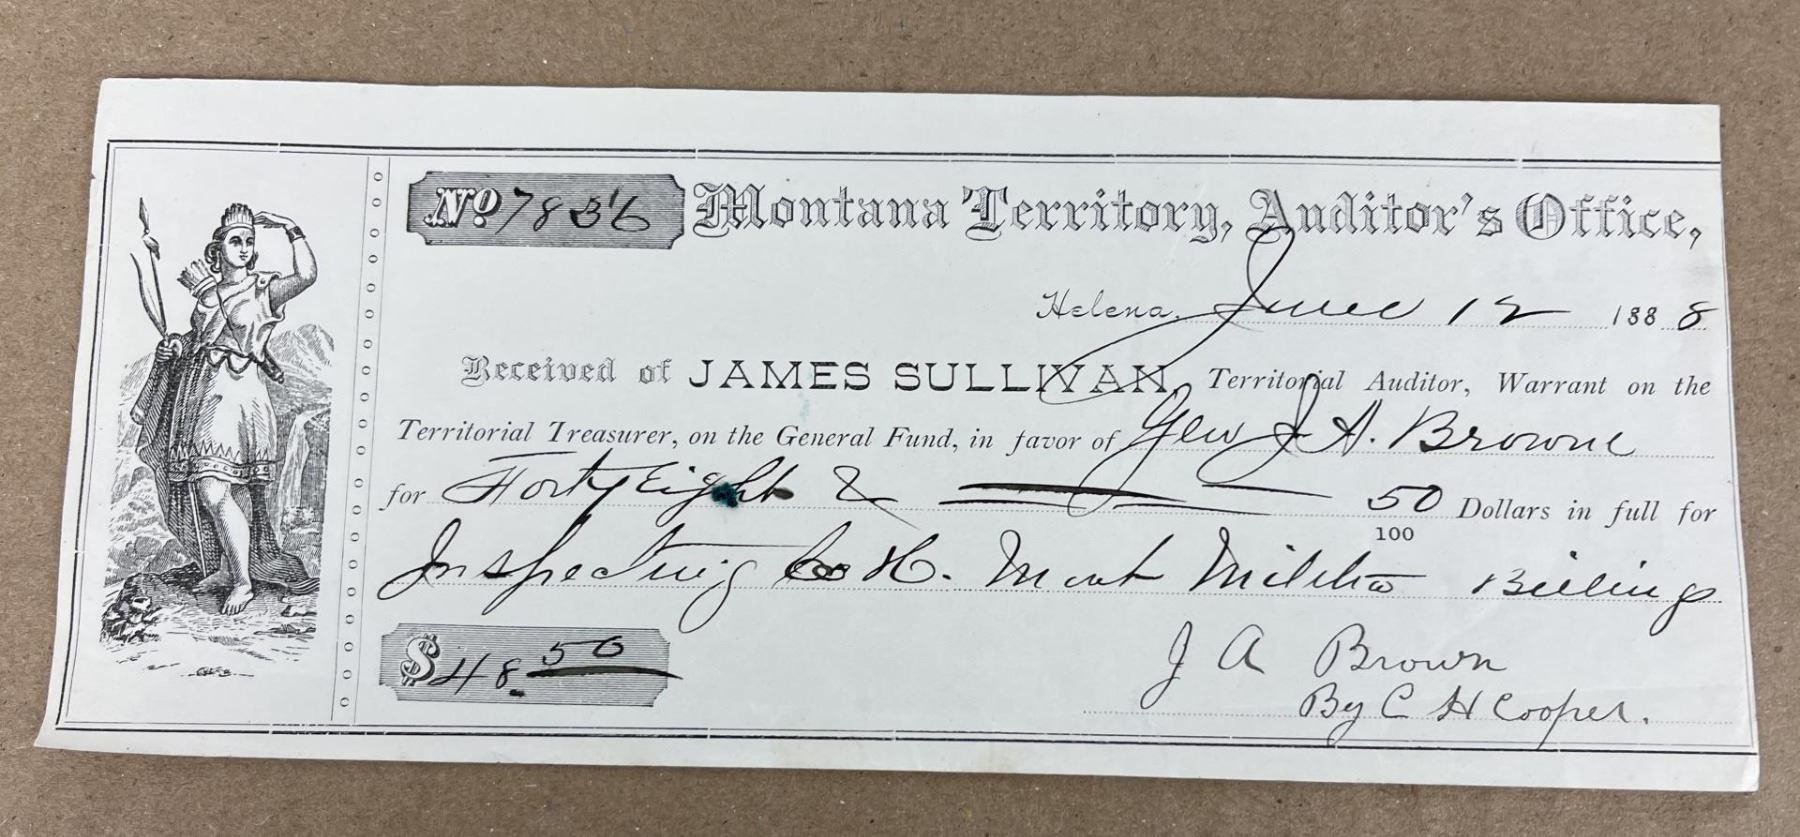 No 7836 Montana Territory, Auditor's Office,
Helena, June 12 1888
Received of JAMES SULLIVAN, Territorial Auditor, Warrant on the
Territorial Treasurer, on the General Fund, in favor of Genl J. A. Browne
for Forty Eight & 50/100 Dollars in full for
Inspecting Co H. Mont Militia Billings
$48.50
J A Brown
By C H Cooper.